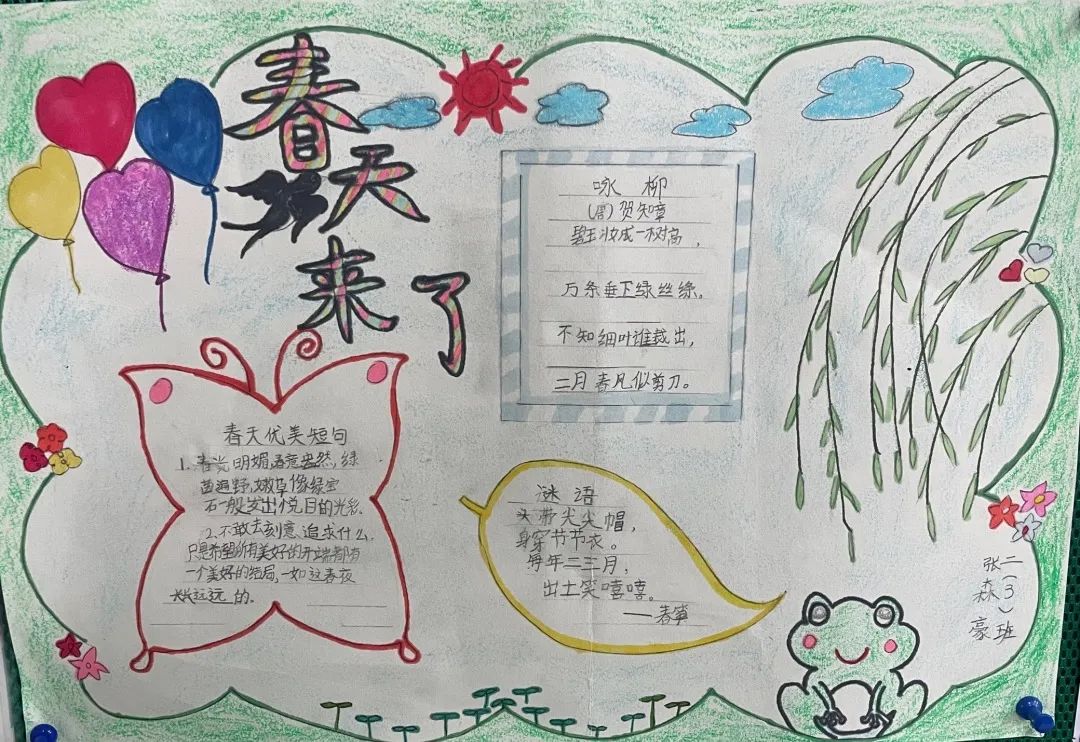 春天来了
咏柳
(唐)贺知章
碧玉妆成一树高，
万条垂下绿丝绦。
不知细叶谁裁出，
二月春风似剪刀。
春天优美短句
1.春光明媚,春意盎然,绿
茵遍野,嫩草像绿宝
石一般发出悦目的光彩.
2.不敢去刻意追求什么.
只是希望所有美好的开端都有
一个美好的结局,一如这春夜
长长远远的.
谜语
头带尖尖帽，
身穿节节衣。
每年二三月，
出土笑嘻嘻。
——春笋
二(3)班
张森豪